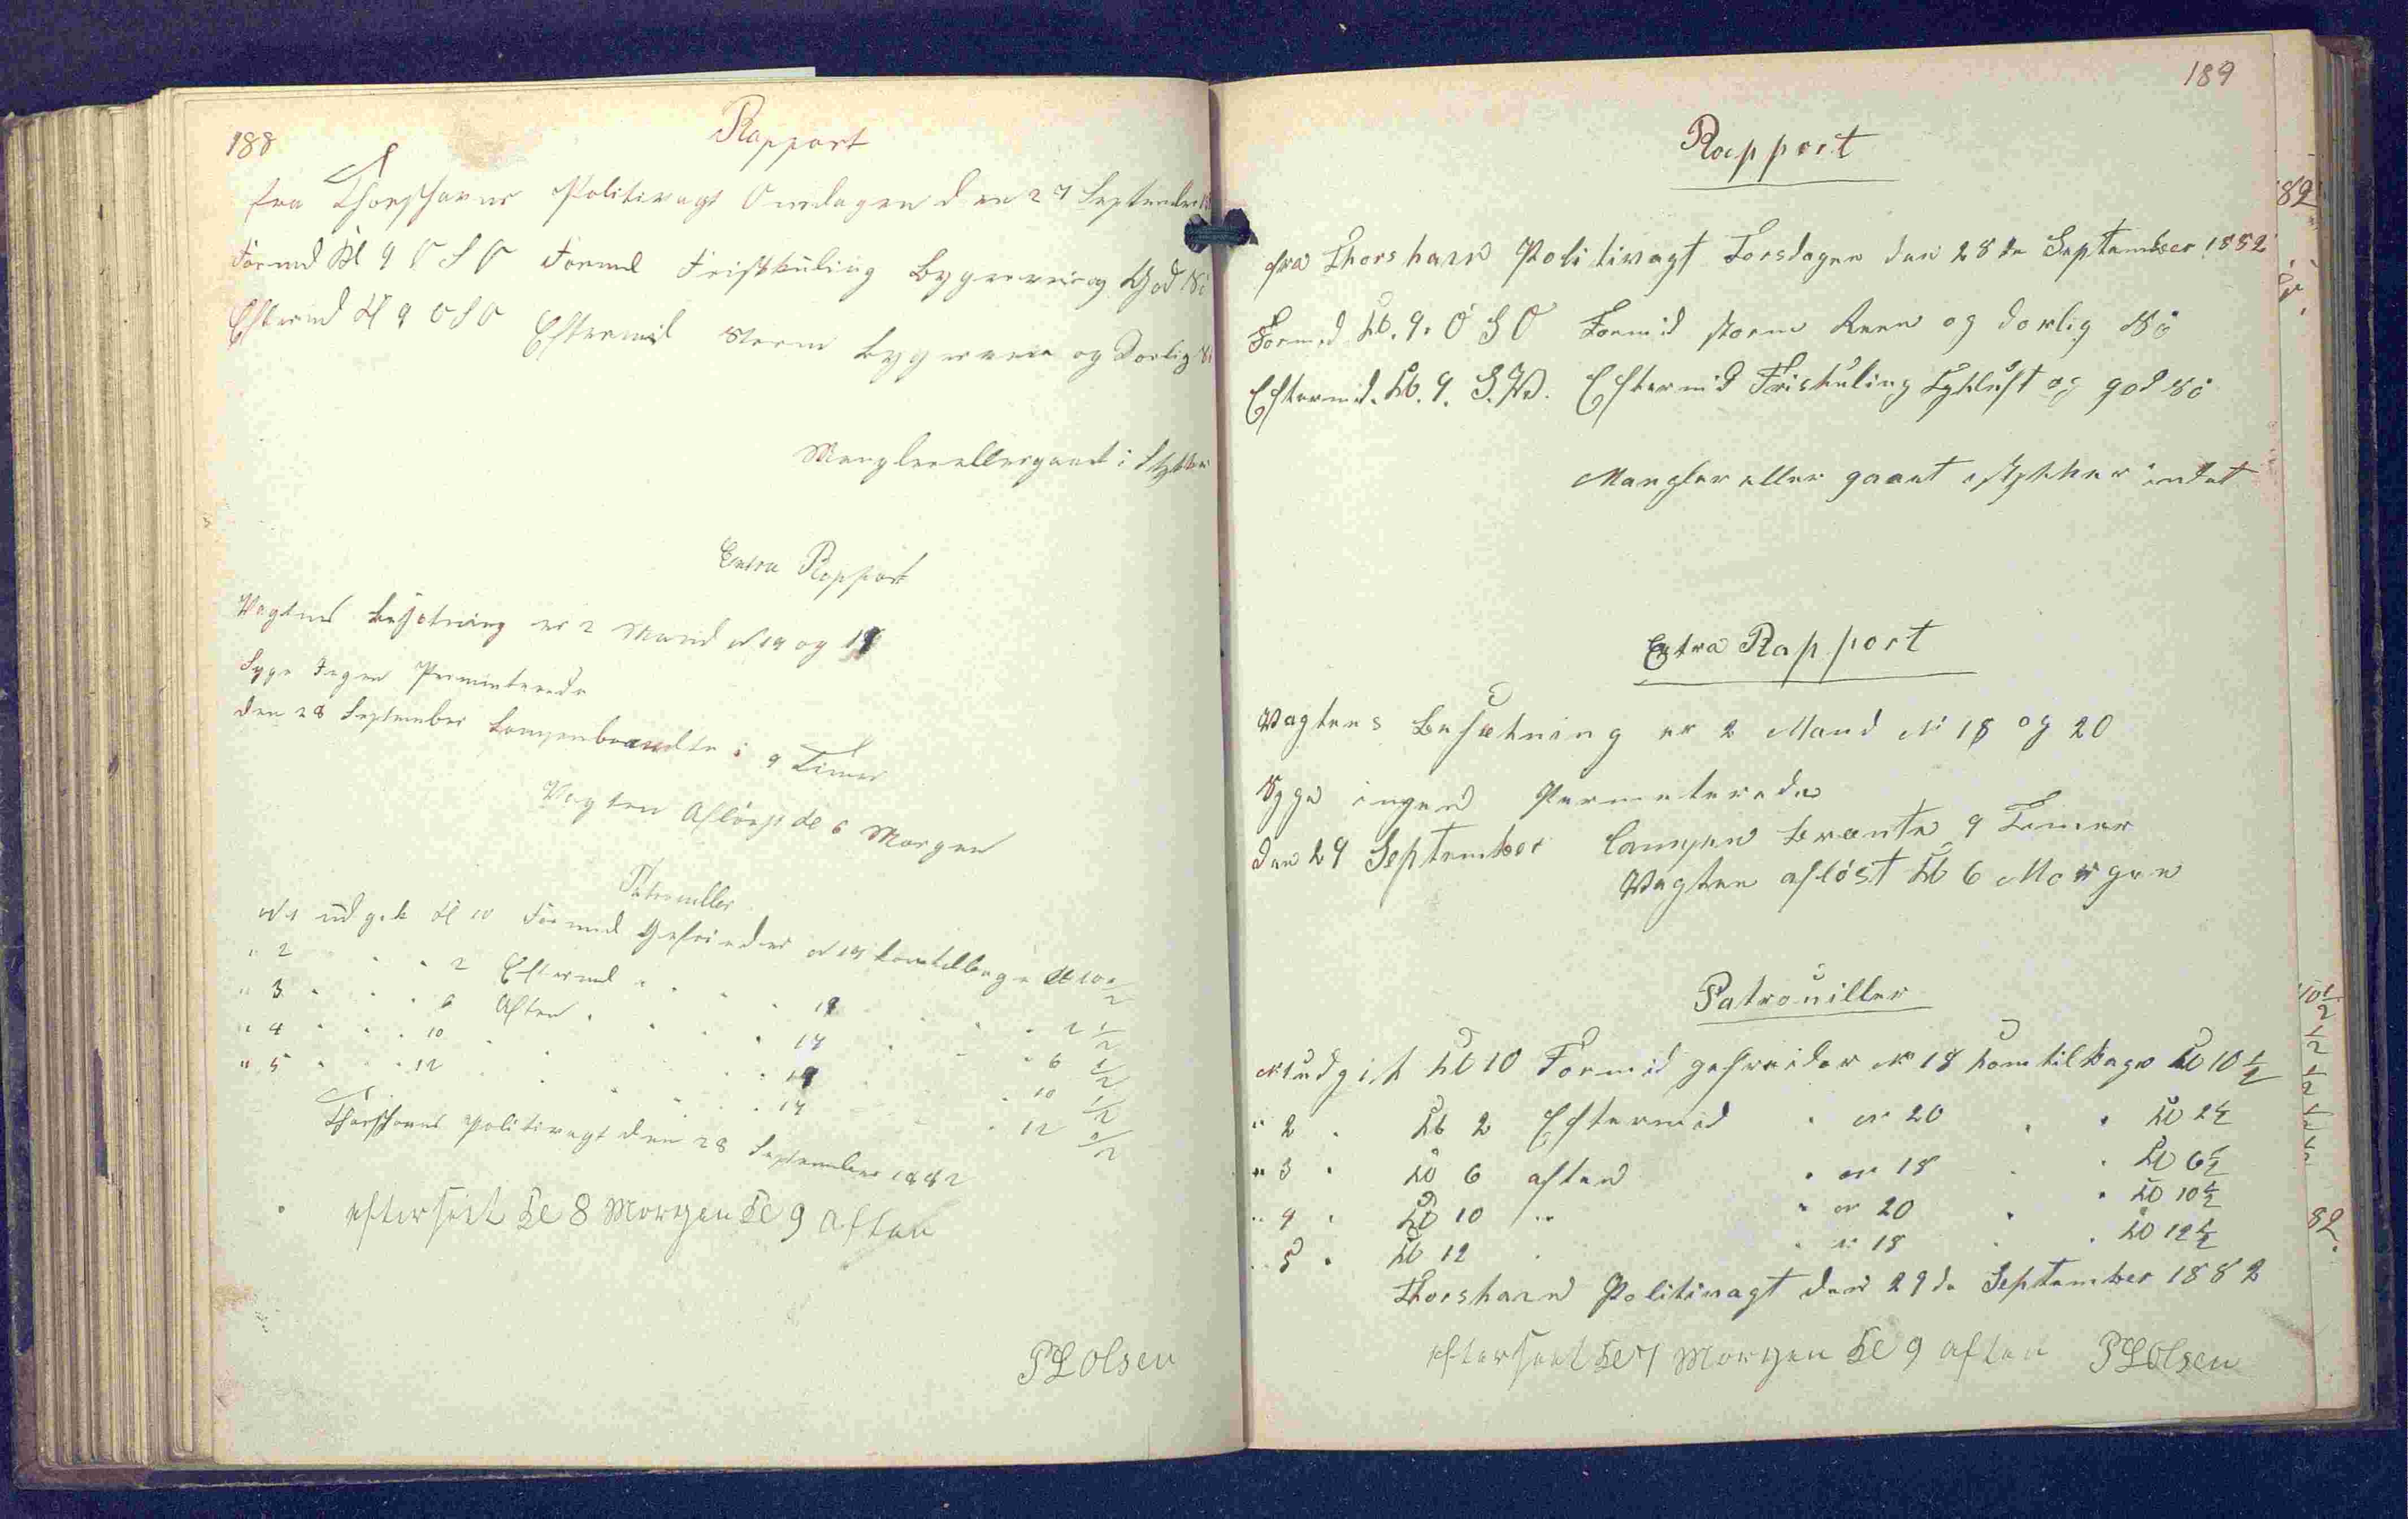 188
Rapport
fra Thorshavns Politivagt Onsdagen den 27 September
Formd Kl 9 O S O Formd Friskkuling Bygeveir og God Sö
Eftermd Kl 9 O S O Eftermid Storm bygeveir og Dorlig
Mangler eller gaaet i Stykker
Extra Rapport
Vagtens besetning er 2 Mand № 14 og
Syge Ingen Permiterede
Den 28 September Lampen brændte i 9 Timer
Vagten Aflöst Kl 6 Morgen
Patrouller
№ 1 udgik Kl 10 Formd Gefreider № 14 kom tilbage Kl 10 1/2
" 2 " " 2 Eftermd " " " 19 " " 2 1/2
" 3 " " 6 Aften " " " 14 " " 6 1/2
" 4 " " 10 " " " 19 " " 10 1/2
" 5 " " 12 " " " 14 " " 12 1/2
Thorshavns Politivagt den 28 September 1882
efterseet Kl 8 Morgen Kl 9 Aften
P L Olsen
189
Rapport
fra Thorshavn Politivagt Torsdagen den 28de September 1882
Formd Kl. 9. O S O Formid storm Regn og dorlig Sö
Eftermid. Kl. 9. S.W. Eftermid Friskuling Tykluft og god sö
Mangler eller gaaet i stykker intet
Extra Rapport
Vagtens Besætning er 2 Mand № 18 og 20
Syge ingen Permeterede
Den 29 September Lampen brænte 9 Timer
Vagten aflöst Kl 6 Morgen
Patrouiller
№ 1 udgik Kl 10 Formid gefreider № 18 kom tilbage Kl 10 1/2
" 2 " Kl 2 Eftermid " № 20 " " Kl 2 1/2
" 3 " Kl 6 aften " № 18 " " Kl 6 1/2
" 4 " Kl 10 " " № 20 " " Kl 10 1/2
" 5 " Kl 12 " " № 18 " " Kl 12 1/2
Thorshavn Politivagt den 29de September 1882
efterseet Kl 7 Morgen Kl 9 aften P L Olsen